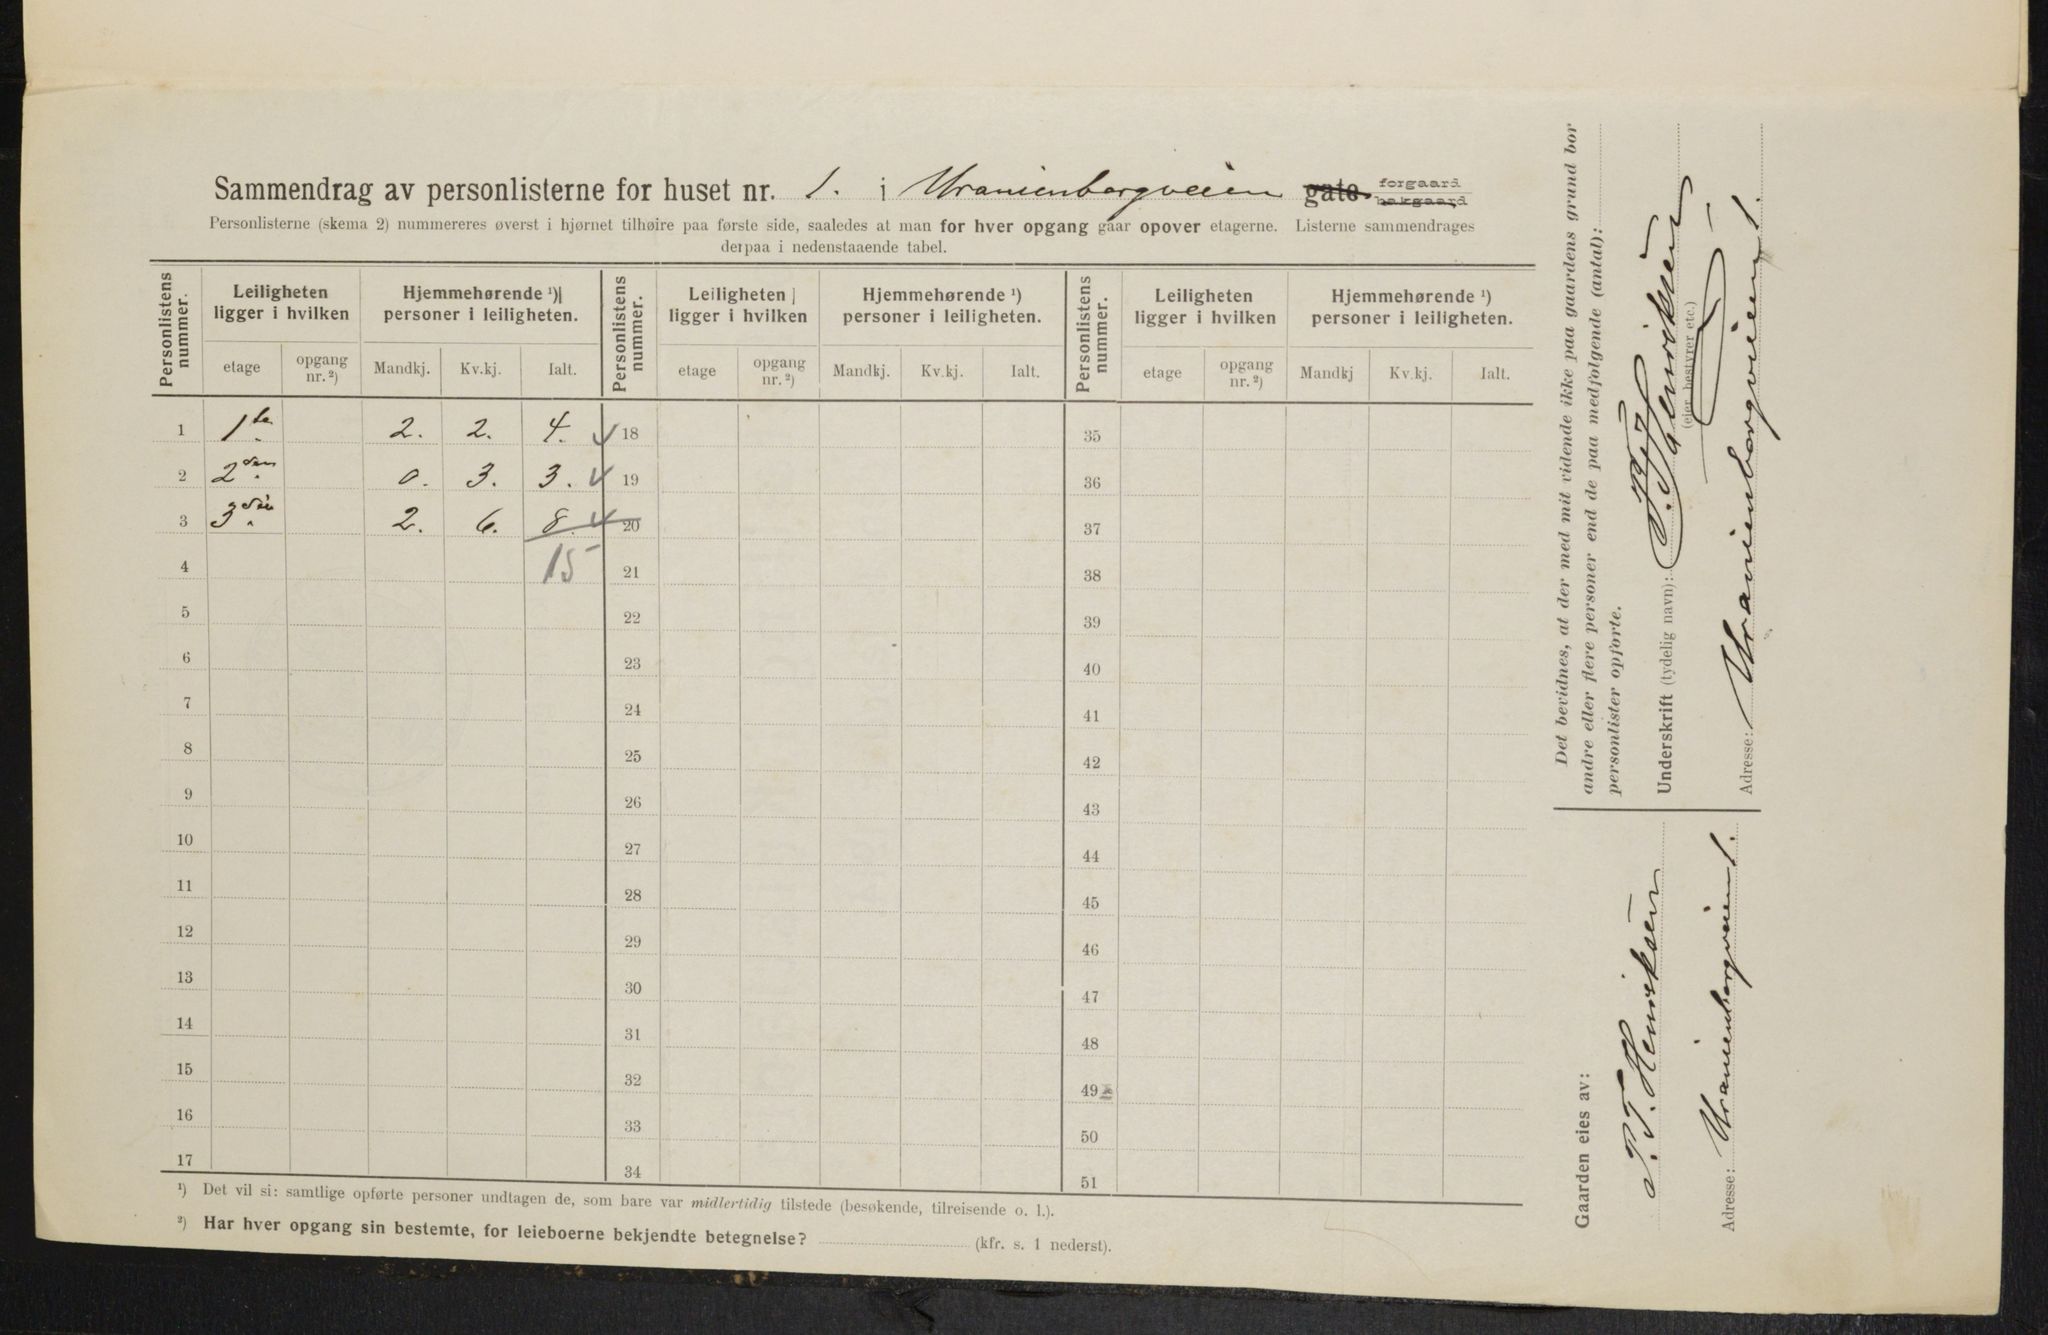 Sammendrag av personlisterne for huset nr. 1. i Uranienborgveien gate. forgaard bakgaard
Personlisterne (skema 2) nummereres øverst i hjørnet tilhøire paa første side, saaledes at man for hver opgang gaar opover etagerne. Listerne sammendrages
derpaa i nedenstaaende tabel.
Personlistens nummer. Leiligheten ligger i hvilken Hjemmehørende ¹) personer i leiligheten. Personlistens nummer. Leiligheten ligger i hvilken Hjemmehørende ¹) personer i leiligheten. Personlistens nummer. Leiligheten ligger i hvilken Hjemmehørende ¹) personer i leiligheten.
etage opgang nr. ²) Mandkj. Kv.kj. Ialt. etage opgang nr. ²) Mandkj. Kv.kj. Ialt. etage opgang nr. ²) Mandkj Kv.kj. Ialt.
1 1ste 2. 2. 4. 18 35
2 2den 0. 3. 3. 19 36
3 3die 2. 6. 8. 20 37
4 15 21 38
5 22 39
6 23 40
7 24 41
8 25 42
9 26 43
10 27 44
11 28 45
12 29 46
13 30 47
14 31 48
15 32 49
16 33 50
17 34 51
¹) Det vil si: samtlige opførte personer undtagen de, som bare var midlertidig tilstede (besøkende, tilreisende o. l.).
²) Har hver opgang sin bestemte, for leieboerne bekjendte betegnelse? (kfr. s. 1 nederst).
Det bevidnes, at der med mit vidende ikke paa gaardens grund bor
andre eller flere personer end de paa medfølgende (antal):
personlister opførte.
Underskrift (tydelig navn): P. T. Henriksen
(eier, bestyrer etc.)
Adresse: Uranienborgveien 1.
Gaarden eies av:
P. T. Henriksen
Adresse: Uranienborgveien 1.